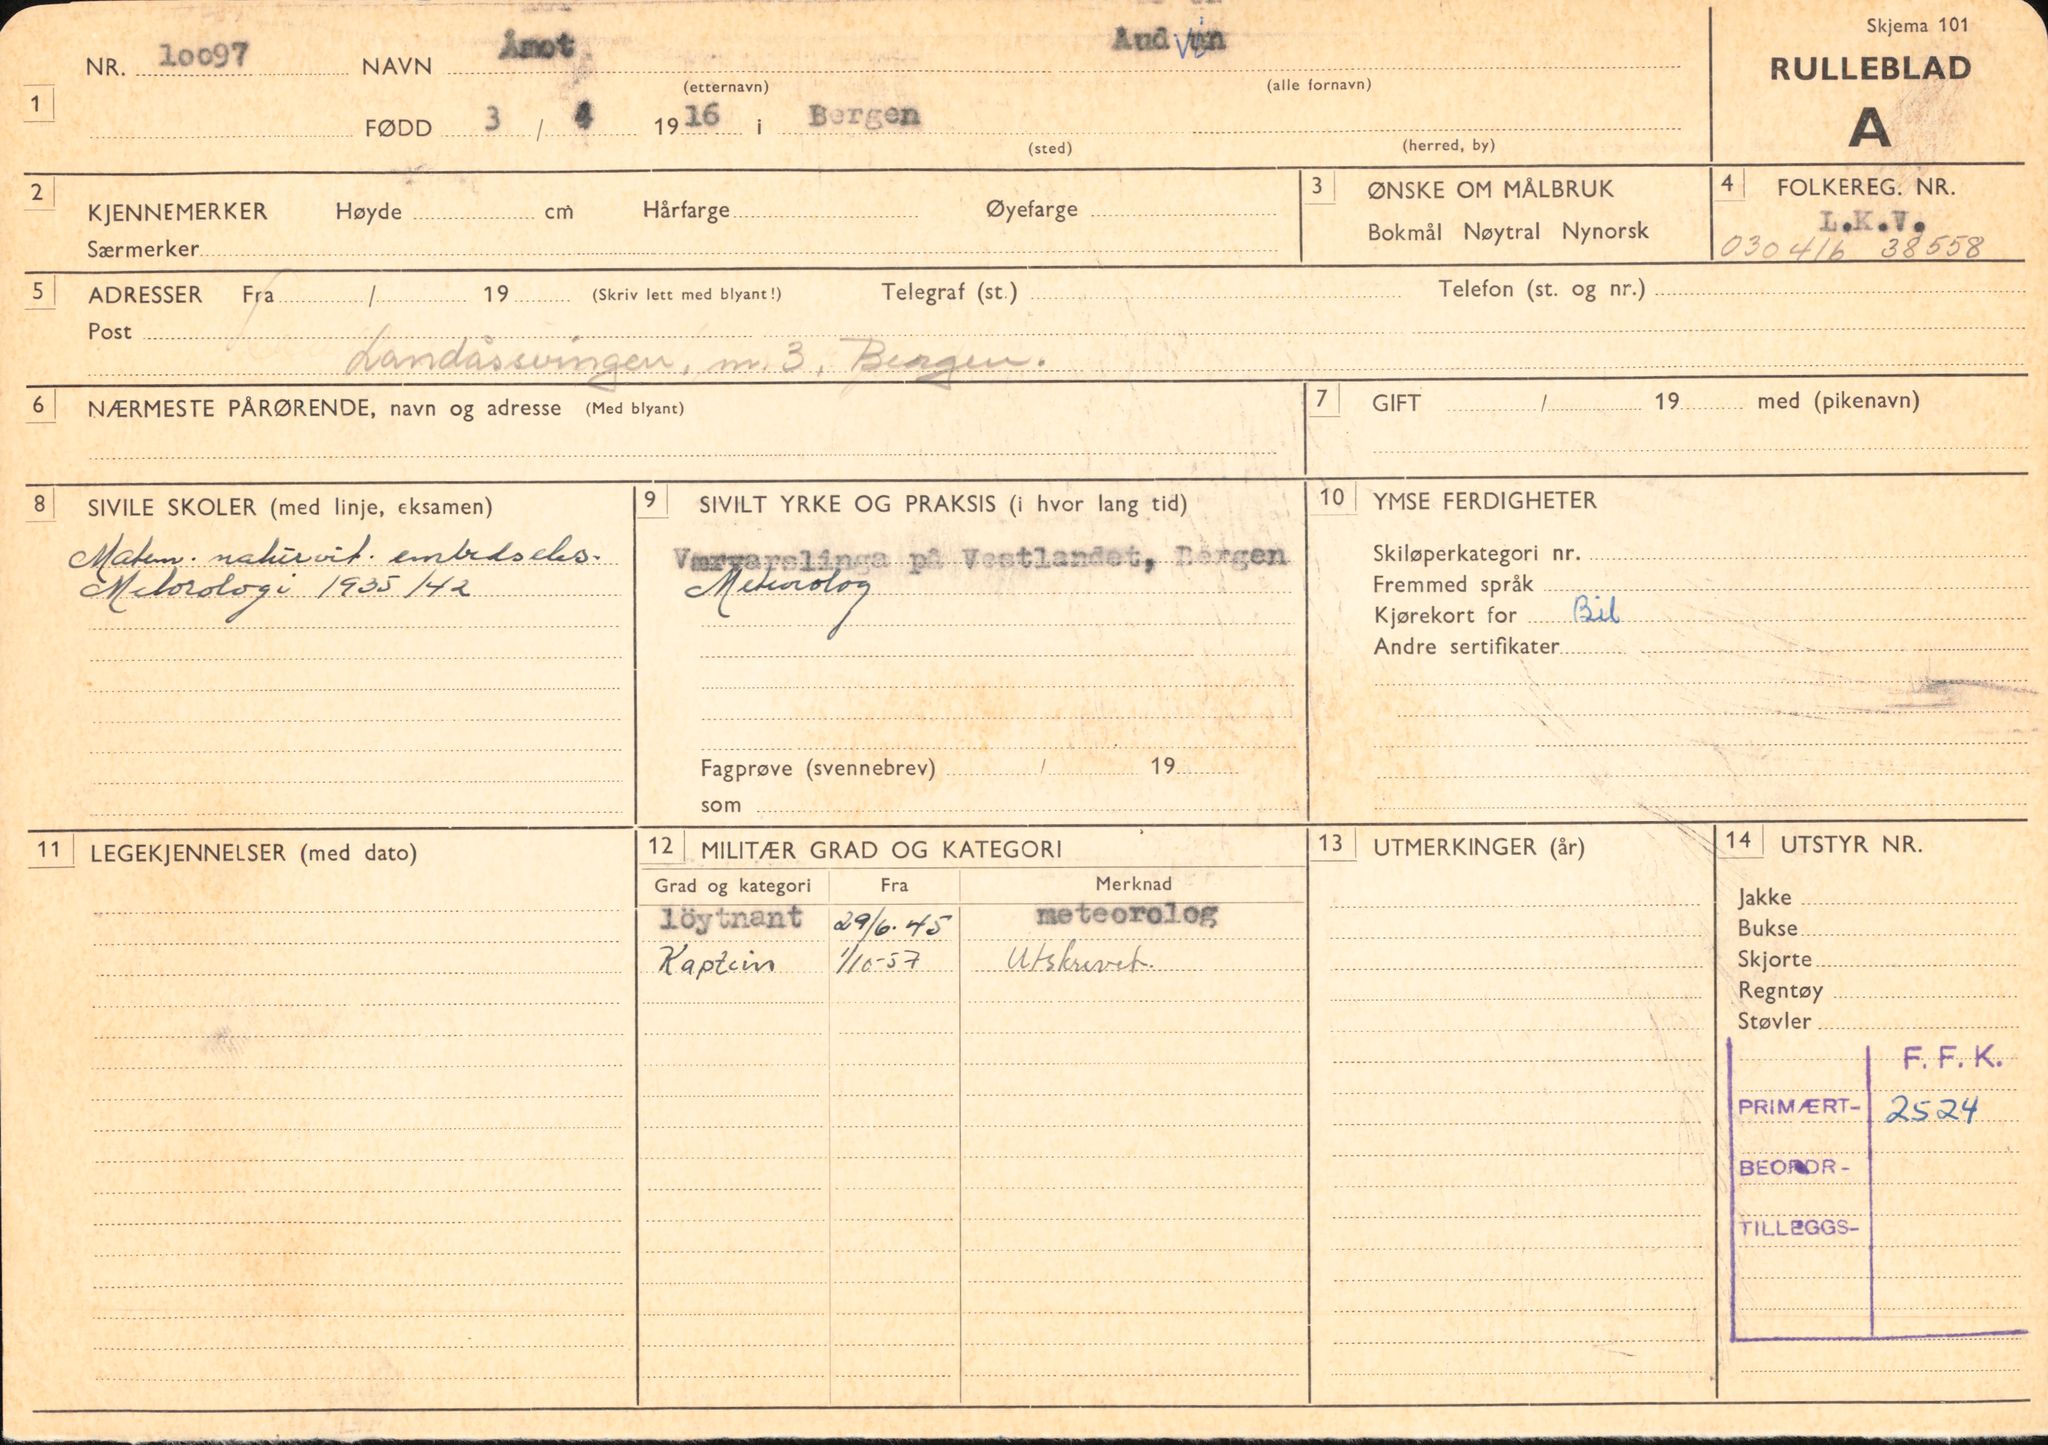 Skjema 101
RULLEBLAD
A
1 NR. 10097 NAVN Åmot Audvin
(etternavn) (alle fornavn)
FØDD 3 / 4 1916 i Bergen
(sted) (herred, by)
2 KJENNEMERKER Høyde cm Hårfarge Øyefarge
Særmerker
3 ØNSKE OM MÅLBRUK
Bokmål Nøytral Nynorsk
4 FOLKEREG. NR.
L.K.V.
030416 38558
5 ADRESSER Fra / 19 (Skriv lett med blyant!) Telegraf (st.) Telefon (st. og nr.)
Post
Landåssvingen, nr. 3, Bergen.
6 NÆRMESTE PÅRØRENDE, navn og adresse (Med blyant)
7 GIFT / 19 med (pikenavn)
8 SIVILE SKOLER (med linje, eksamen)
Matem. naturvit. embedseks.
Metorologi 1935/42
9 SIVILT YRKE OG PRAKSIS (i hvor lang tid)
Værvarslinga på Vestlandet, Bergen
Meteorolog
Fagprøve (svennebrev) / 19
som
10 YMSE FERDIGHETER
Skiløperkategori nr.
Fremmed språk
Kjørekort for Bil
Andre sertifikater
11 LEGEKJENNELSER (med dato)
12 MILITÆR GRAD OG KATEGORI
Grad og kategori Fra Merknad
löytnant 29/6.45 meteorolog
Kaptein 1/10-57 Utskrevet.
13 UTMERKINGER (år)
14 UTSTYR NR.
Jakke
Bukse
Skjorte
Regntøy
Støvler
F. F. K.
PRIMÆRT- 2524
BEORDR-
TILLEGGS-